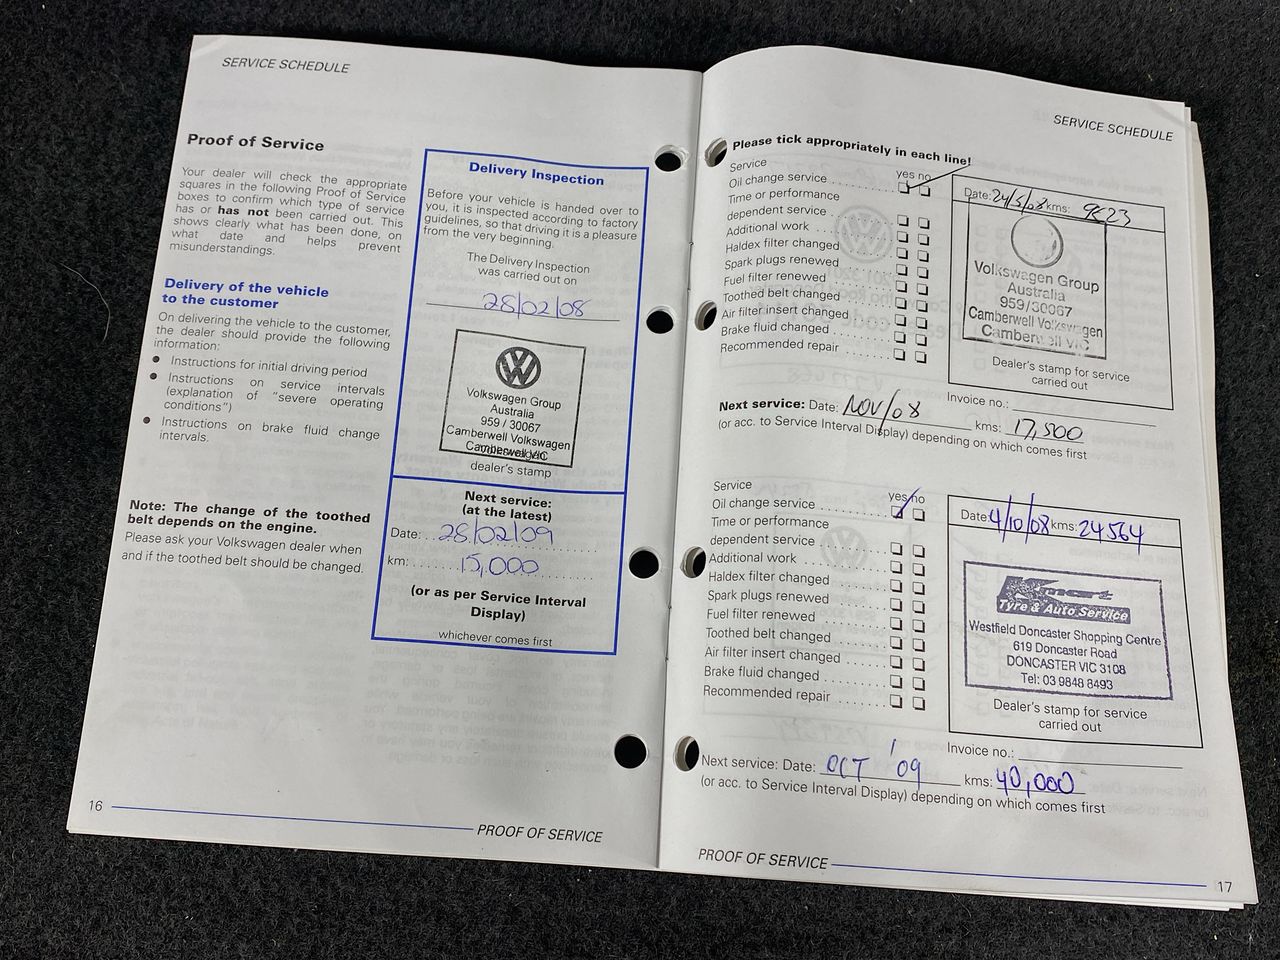 SERVICE SCHEDULE
Proof of Service
Your dealer will check the appropriate
squares in the following Proof of Service
boxes to confirm which type of service
has or has not been carried out. This
shows clearly what has been done, on
what date and helps prevent
misunderstandings.
Delivery of the vehicle
to the customer
On delivering the vehicle to the customer,
the dealer should provide the following
information:
Instructions for initial driving period
Instructions on service intervals
(explanation of "severe operating
conditions")
Instructions on brake fluid change
intervals.
Note: The change of the toothed
belt depends on the engine.
Please ask your Volkswagen dealer when
and if the toothed belt should be changed.
Delivery Inspection
Before your vehicle is handed over to
you, it is inspected according to factory
guidelines, so that driving it is a pleasure
from the very beginning.
The Delivery Inspection
was carried out on
28/02/08
Volkswagen Group
Australia
959 / 30067
Camberwell Volkswagen
Camberwell VIC
dealer's stamp
Next service:
(at the latest)
Date: 28/02/09
km: 15,000
(or as per Service Interval
Display)
whichever comes first
16
PROOF OF SERVICE
SERVICE SCHEDULE
Please tick appropriately in each line!
Service yes no
Oil change service
Time or performance
dependent service
Additional work
Haldex filter changed
Spark plugs renewed
Fuel filter renewed
Toothed belt changed
Air filter insert changed
Brake fluid changed
Recommended repair
Date: 24/5/08 kms:
Volkswagen Group
Australia
959/30067
Camberwell Volkswagen
Camberwell VIC
Dealer's stamp for service
carried out
Invoice no.:
Next service: Date: NOV/08 kms: 17,500
(or acc. to Service Interval Display) depending on which comes first
Service yes no
Oil change service
Time or performance
dependent service
Additional work
Haldex filter changed
Spark plugs renewed
Fuel filter renewed
Toothed belt changed
Air filter insert changed
Brake fluid changed
Recommended repair
Date 4/10/08 kms: 24564
Kmart
Tyre & Auto Service
Westfield Doncaster Shopping Centre
619 Doncaster Road
DONCASTER VIC 3108
Tel: 03 9848 8493
Dealer's stamp for service
carried out
Invoice no.:
Next service: Date: OCT '09 kms: 40,000
(or acc. to Service Interval Display) depending on which comes first
PROOF OF SERVICE
17